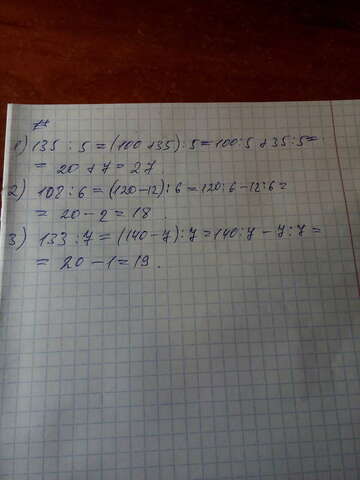 1) 135 : 5 = (100 + 35) : 5 = 100 : 5 + 35 : 5 =
= 20 + 7 = 27.
2) 108 : 6 = (120 - 12) : 6 = 120 : 6 - 12 : 6 =
= 20 - 2 = 18.
3) 133 : 7 = (140 - 7) : 7 = 140 : 7 - 7 : 7 =
= 20 - 1 = 19.